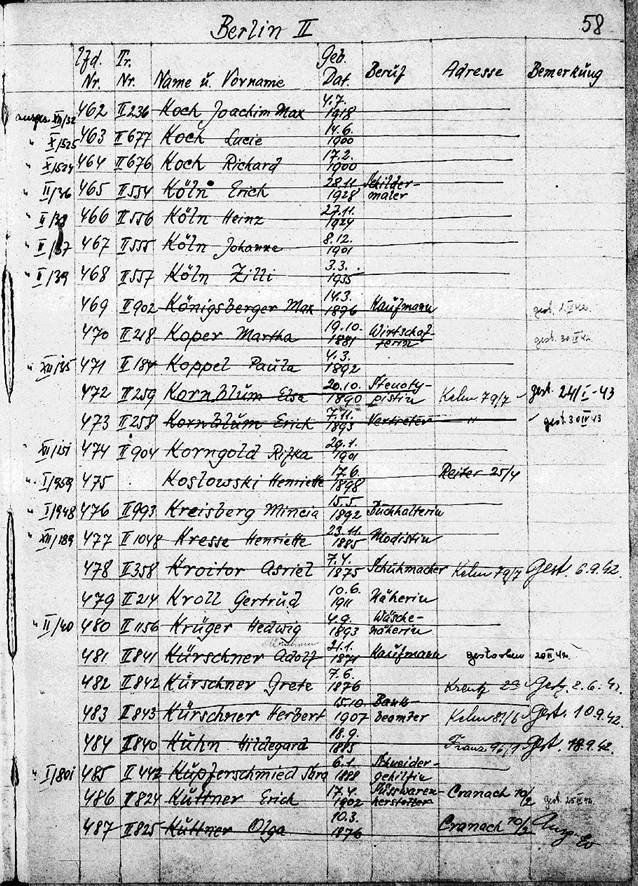 Berlin II 58
Lfd. Nr. Tr. Nr. Name u. Vorname Geb. Dat. Beruf Adresse Bemerkung
462 II 236 Koch Joachim Max 4.7. 1918
463 II 677 Koch Lucie 14.6. 1900
464 II 676 Koch Richard 17.2. 1900
II/36 465 II 554 Köln Erich 28.11. 1928 Schildermaler
466 II 556 Köln Heinz 27.11. 1924
467 II 555 Köln Johanna 8.12. 1901
II/39 468 II 557 Köln Zilli 3.3. 1935
469 II 902 Königsberger Max 14.3. 1876 Kaufmann gest.
470 II 218 Koper Martha 19.10. 1881 Wirtschafterin gest.
471 II 184 Koppel Paula 4.3. 1892
472 II 259 Kornblum Elsa 20.10. 1890 Stenotypistin Kelm 79/7 gest. 24/I-43
473 II 258 Kornblum Erich 7.11. 1893 Vertreter " gest.
474 II 904 Korngold Rifka 29.1. 1901
475 Koslowski Henriette 17.6. 1898 Reiter 25/4
I/948 476 II 993 Kreisberg Mincia 15.5. 1892 Buchhalterin
XII/189 477 II 1048 Kresse Henriette 23.11. 1885 Modistin
478 II 358 Kroitor Asriel 7.4. 1875 Schuhmacher Kelm 79/7 Gest. 6.9.42.
479 II 214 Kroll Gertrud 10.6. 1911 Näherin
II/40 480 II 1156 Krüger Hedwig 4.9. 1893 Wäschenäherin
481 II 841 Kürschner Adolf 21.1. 1871 Kaufmann gestorben
482 II 842 Kürschner Grete 7.6. 1876 Gest. 2.6.42.
483 II 843 Kürschner Herbert 15.10. 1907 Bankbeamter Kelm Gest. 10.9.42.
484 II 840 Kuhn Hildegard 18.9. 1885 Gest. 18.9.42.
I/801 485 II 442 Kupferschmied 6.1. 1888 Schneidergehilfin
486 II 824 Küttner Erich 17.4. 1902 Süsswarenhersteller Cranach 10/2 gest.
487 II 825 Küttner Olga 10.3. 1876 Cranach 10/2